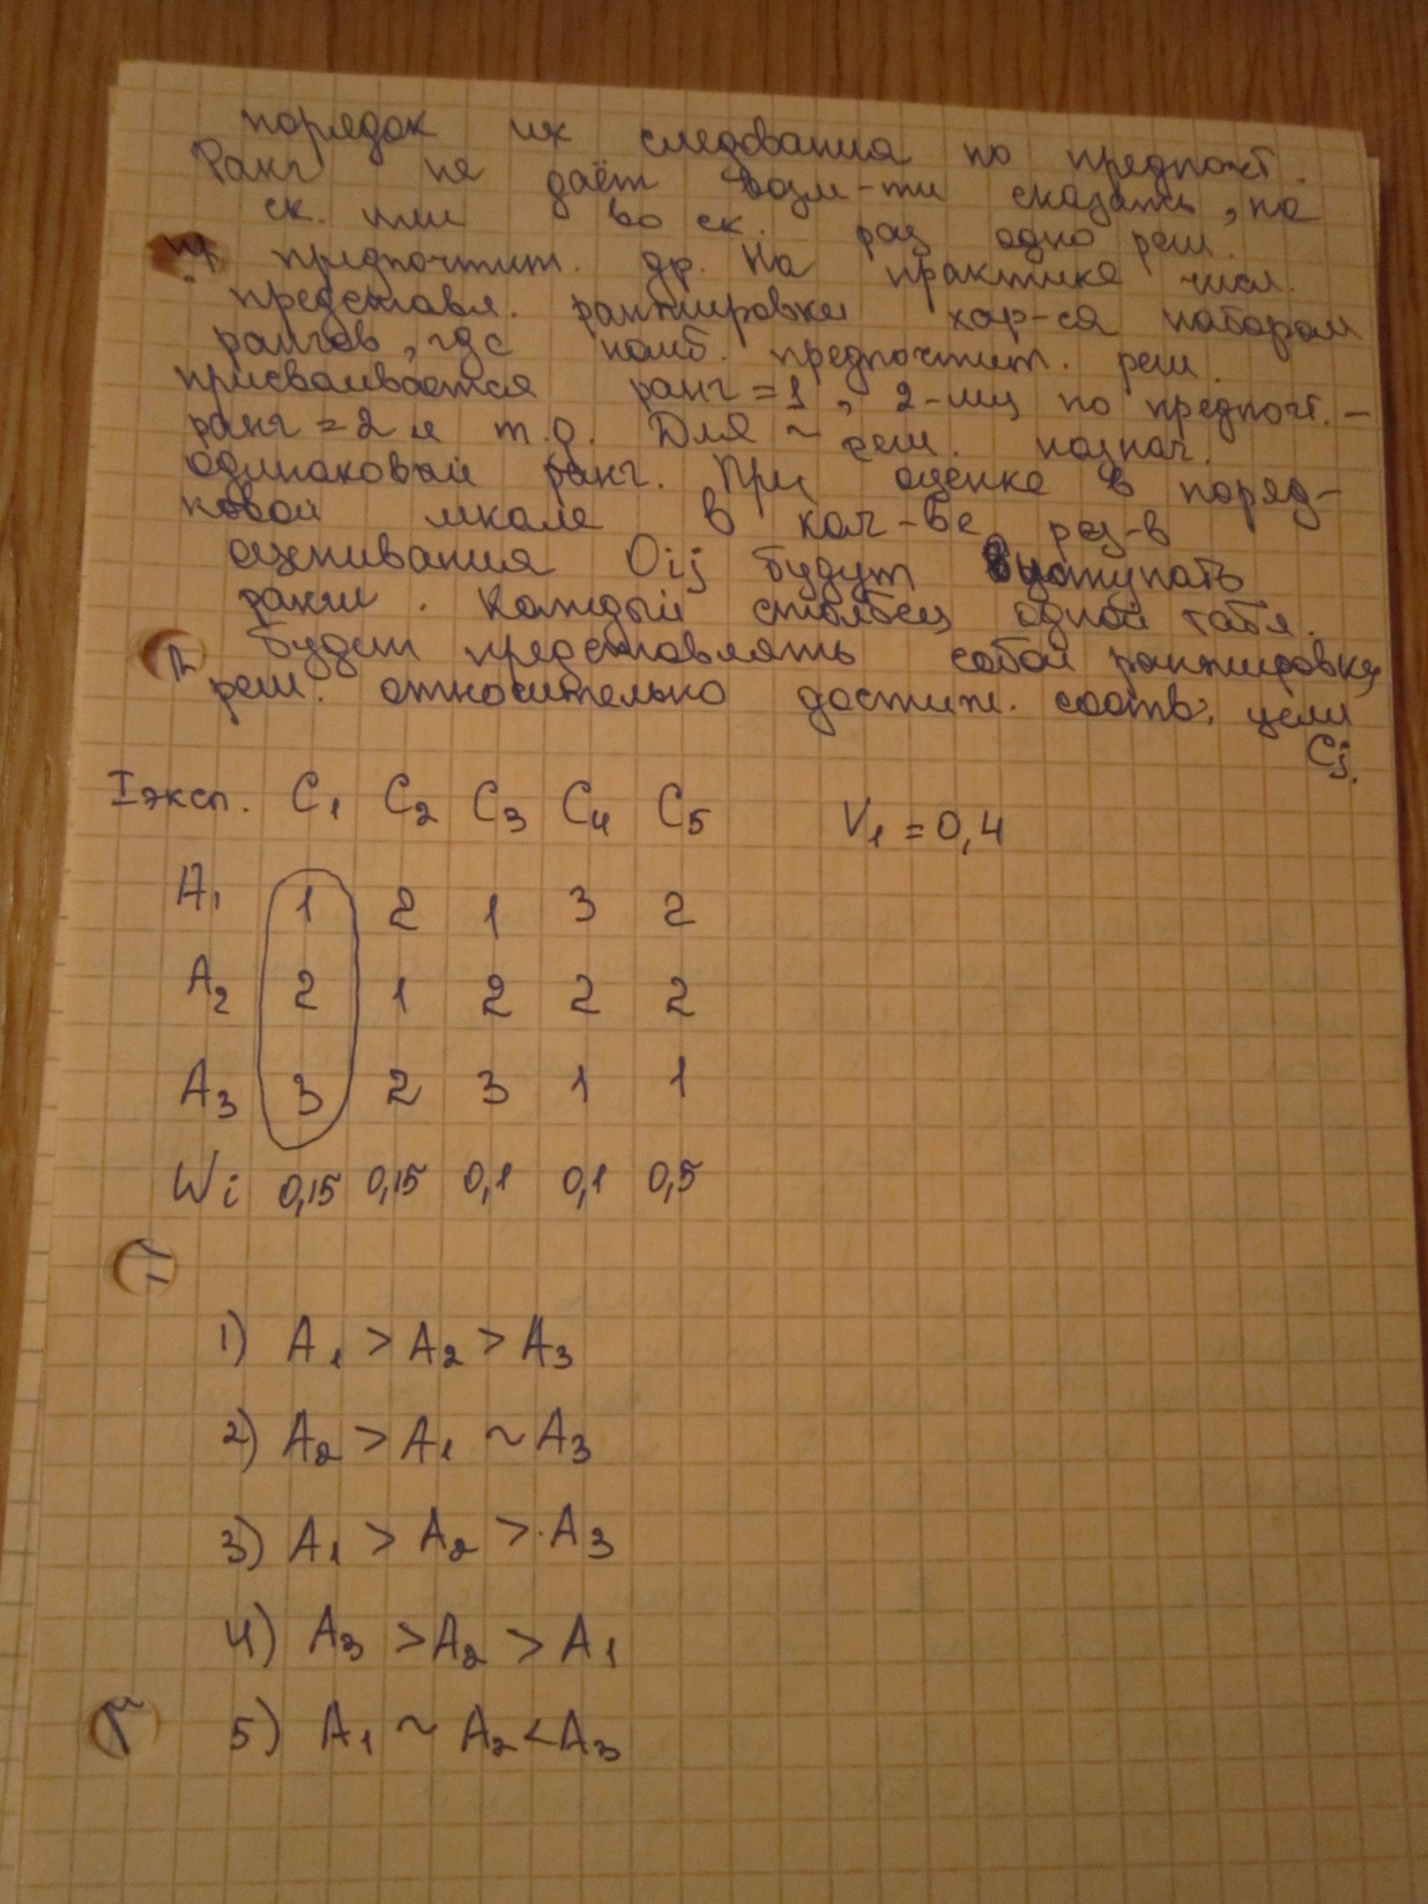 порядок их следования по предпочт.
Ранг не даёт возм-ти сказать, на
ск. или во ск. раз одно реш.
предпочтит. др. На практике числ.
представл. ранжировки хар-ся набором
рангов, где наиб. предпочтит. реш.
присваивается ранг = 1, 2-му по предпочт. –
ранг = 2 и т.д. Для ~ реш. назнач.
одинаковый ранг. При оценке в поряд-
ковой шкале в кач-ве рез-в
оценивания Oij будут выступать
ранги. Каждый столбец одной табл.
будет представлять собой ранжировку
реш. относительно достиж. соотв. цели
Cj.
I эксп. C1 C2 C3 C4 C5 V1 = 0,4
A1 1 2 1 3 2
A2 2 1 2 2 2
A3 3 2 3 1 1
Wi 0,15 0,15 0,1 0,1 0,5
1) A1 > A2 > A3
2) A2 > A1 ~ A3
3) A1 > A2 > A3
4) A3 > A2 > A1
5) A1 ~ A2 < A3